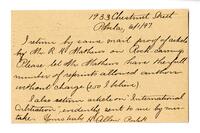 1933 Chestnut Street
Phila, 6/1/07
I return by same mail proof of article
by Mr. R. H. Mathews on Rock Carvings
Please let Mr Mathews have the full
number of reprints allowed authors
without charge (50 I believe)
I also return article on "International
Arbitration" evidently sent to me by mis-
take. Yours truly H. Allen